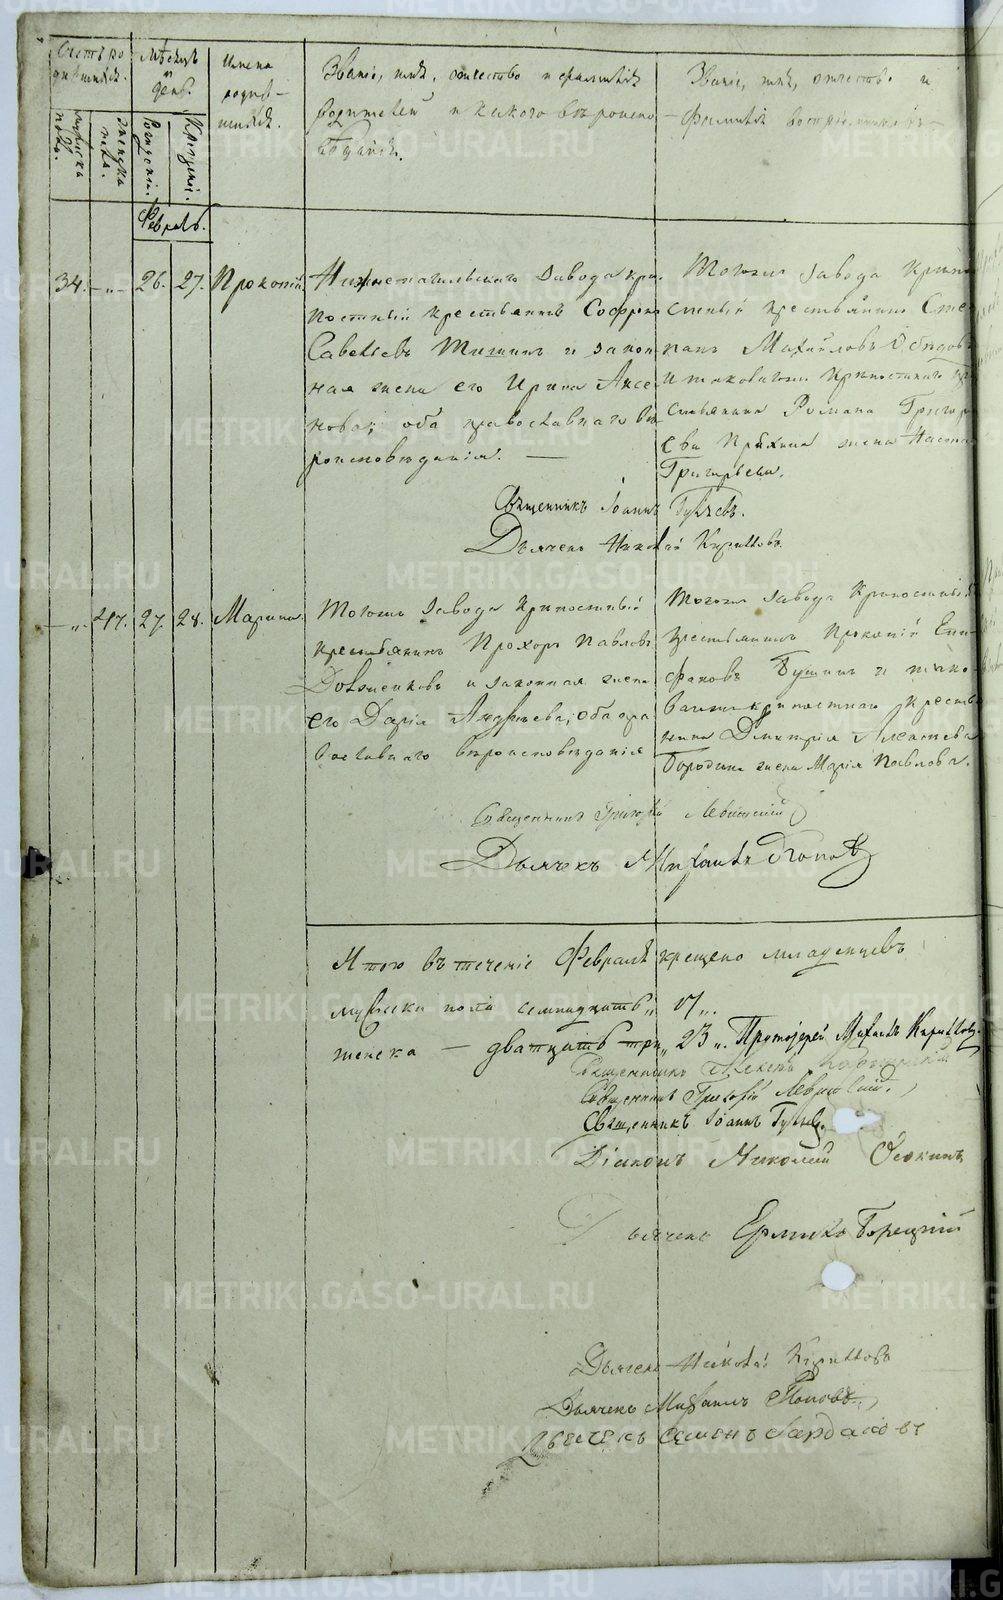 Счетъ ро
дившихся.
мужеска
пола.
женска
пола.
Мѣсяцъ
и
день.
Рожденія.
Крещенія.
Имена
родив-
шихся.
Званіе, имя, отчество и фамилія
родителей и какого вѣроиспо-
вѣданія.
Званіе, имя, отчество и
фамилія воспріемниковъ
Февраль.
34. -"- 26. 27. Прокопій
Нижнетагильскаго завода крѣ-
постный крестьянинъ Софронъ
Савельевъ и закон-
ная жена его Ирина Аксе-
нова; оба православнаго вѣ-
роисповѣданія. —
Тогожъ завода Крѣпо
стный крестьянинъ Сте
панъ Михайловъ
и таковагожъ Крѣпостнаго кре
стьянина Романа Григорь
ева жена Наста
Григорьева.
Священникъ Іоаннъ
Дьячекъ Николай Кирилловъ.
-"- 47. 27. 28. Марина.
Тогожъ завода Крѣпостный
крестьянинъ Прохоръ Павловъ
и законная жена
его Дарія Андреева; оба пра
вославнаго вѣроисповѣданія
Тогожъ завода Крѣпостный
крестьянинъ Прокопій Епи-
фановъ и тако
ваго крѣпостнаго кресть
нина Дмитрія
Бородина жена Марія Павлова.
Священникъ Григорій Левитскій
Дьячекъ Михаилъ Поповъ
Итого въ теченіе Февраля крещено младенцевъ
мужеска пола семнадцать „ 17 „.
женска — двадцать три „ 23 „. Протоіерей Михаилъ Кирилловъ.
Священникъ
Священникъ Григорій Левитскій.
Священникъ Іоаннъ
Діаконъ Николай Осокинъ
Дьячекъ Ермилъ Борецкій
Дьячекъ Николай Кирилловъ
Дьячекъ Михаилъ Поповъ.
Дьячекъ Семенъ
METRIKI.GASO-URAL.RU